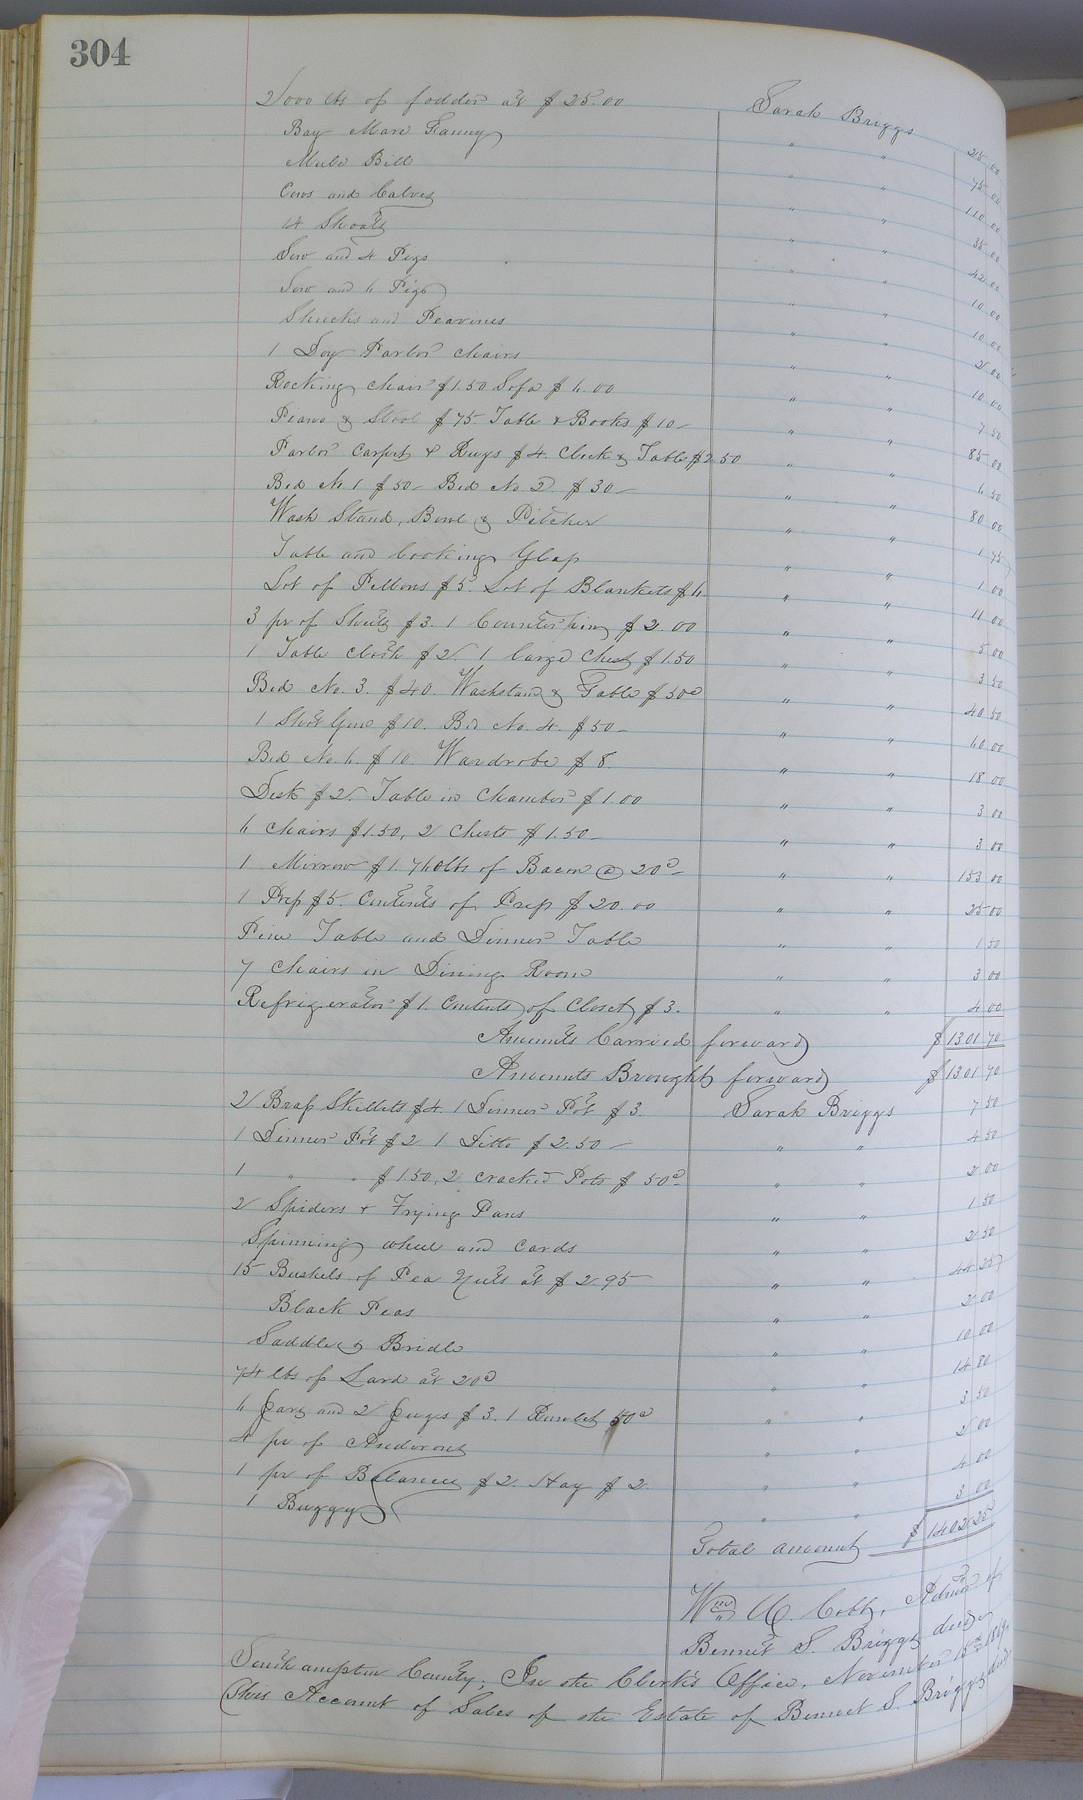 304
2000 lbs of fodder at $25.00 Sarah Briggs 25 00
Bay Mare Fanny " " 75 00
Mule Bill " " 110 00
Cows and Calves " " 35 00
14 Shoats " " 42 00
Sow and 4 Pigs " " 10 00
Sow and 6 Pigs " " 10 00
Shucks and Peavines " " 2 00
1 Doz Parlor chairs " " 10 00
Rocking chair $1.50 Sofa $6.00 " " 7 50
Piano & Stool $75 Table & Books $10 " " 85 00
Parlor Carpet & Rugs $4. Clock & Table $2.50 " " 6 50
Bed No 1 $50 Bed No 2 $30 " " 80 00
Wash Stand, Bowl & Pitcher " " 1 75
Table and Looking Glass " " 1 00
Lot of Pillows $5. Lot of Blankets $6. " " 11 00
3 pr of Sheets $3. 1 Counterpin $2.00 " " 5 00
1 Table Cloth $2. 1 large Chest $1.50 " " 3 50
Bed No. 3. $40. Washstand & Table $50c " " 40 50
1 Shot Gun $10. Bed No. 4. $50 " " 60 00
Bed No. 6. $10. Wardrobe $8. " " 18 00
Desk $2. Table in Chamber $1.00 " " 3 00
6 chairs $1.50, 2 Chests $1.50 " " 3 00
1 Mirrow $1. 760 lbs of Bacon @ 20c " " 153 00
1 Press $5. Contents of Press $20.00 " " 25 00
Pine Table and Dinner Table " " 1 50
7 chairs in Dining Room " " 3 00
Refrigerator $1. Contents of Closet $3. " " 4 00
Amounts Carried forward $1301 70
Amounts Brought forward $1301 70
2 Brass Skillets $4. 1 Dinner Pot $3. Sarah Briggs 7 50
1 Dinner Pot $2 1 Ditto $2.50 " " 4 50
1 " " $1.50, 2 cracked Pots $50c " " 2 00
2 Spiders & Frying Pans " " 1 50
Spinning wheel and cards " " 2 50
15 Bushels of Pea Nuts at $2.95 " " 44 25
Black Peas " " 2 00
Saddle & Bridle " " 10 00
74 lbs of Lard at 20c " " 14 80
6 Jars and 2 Juggs $3. 1 Runlet 50c " " 3 50
4 pr of Andirons " " 2 00
1 pr of Balances $2. Hay $2. " " 4 00
1 Buggy " " 3 00
Total amount $1402 25
Wm Cobb, Admr of
Bennet S. Briggs decd
Southampton County; In the Clerk's Office, November 15th 1869.
This Account of Sales of the Estate of Bennet S. Briggs decd